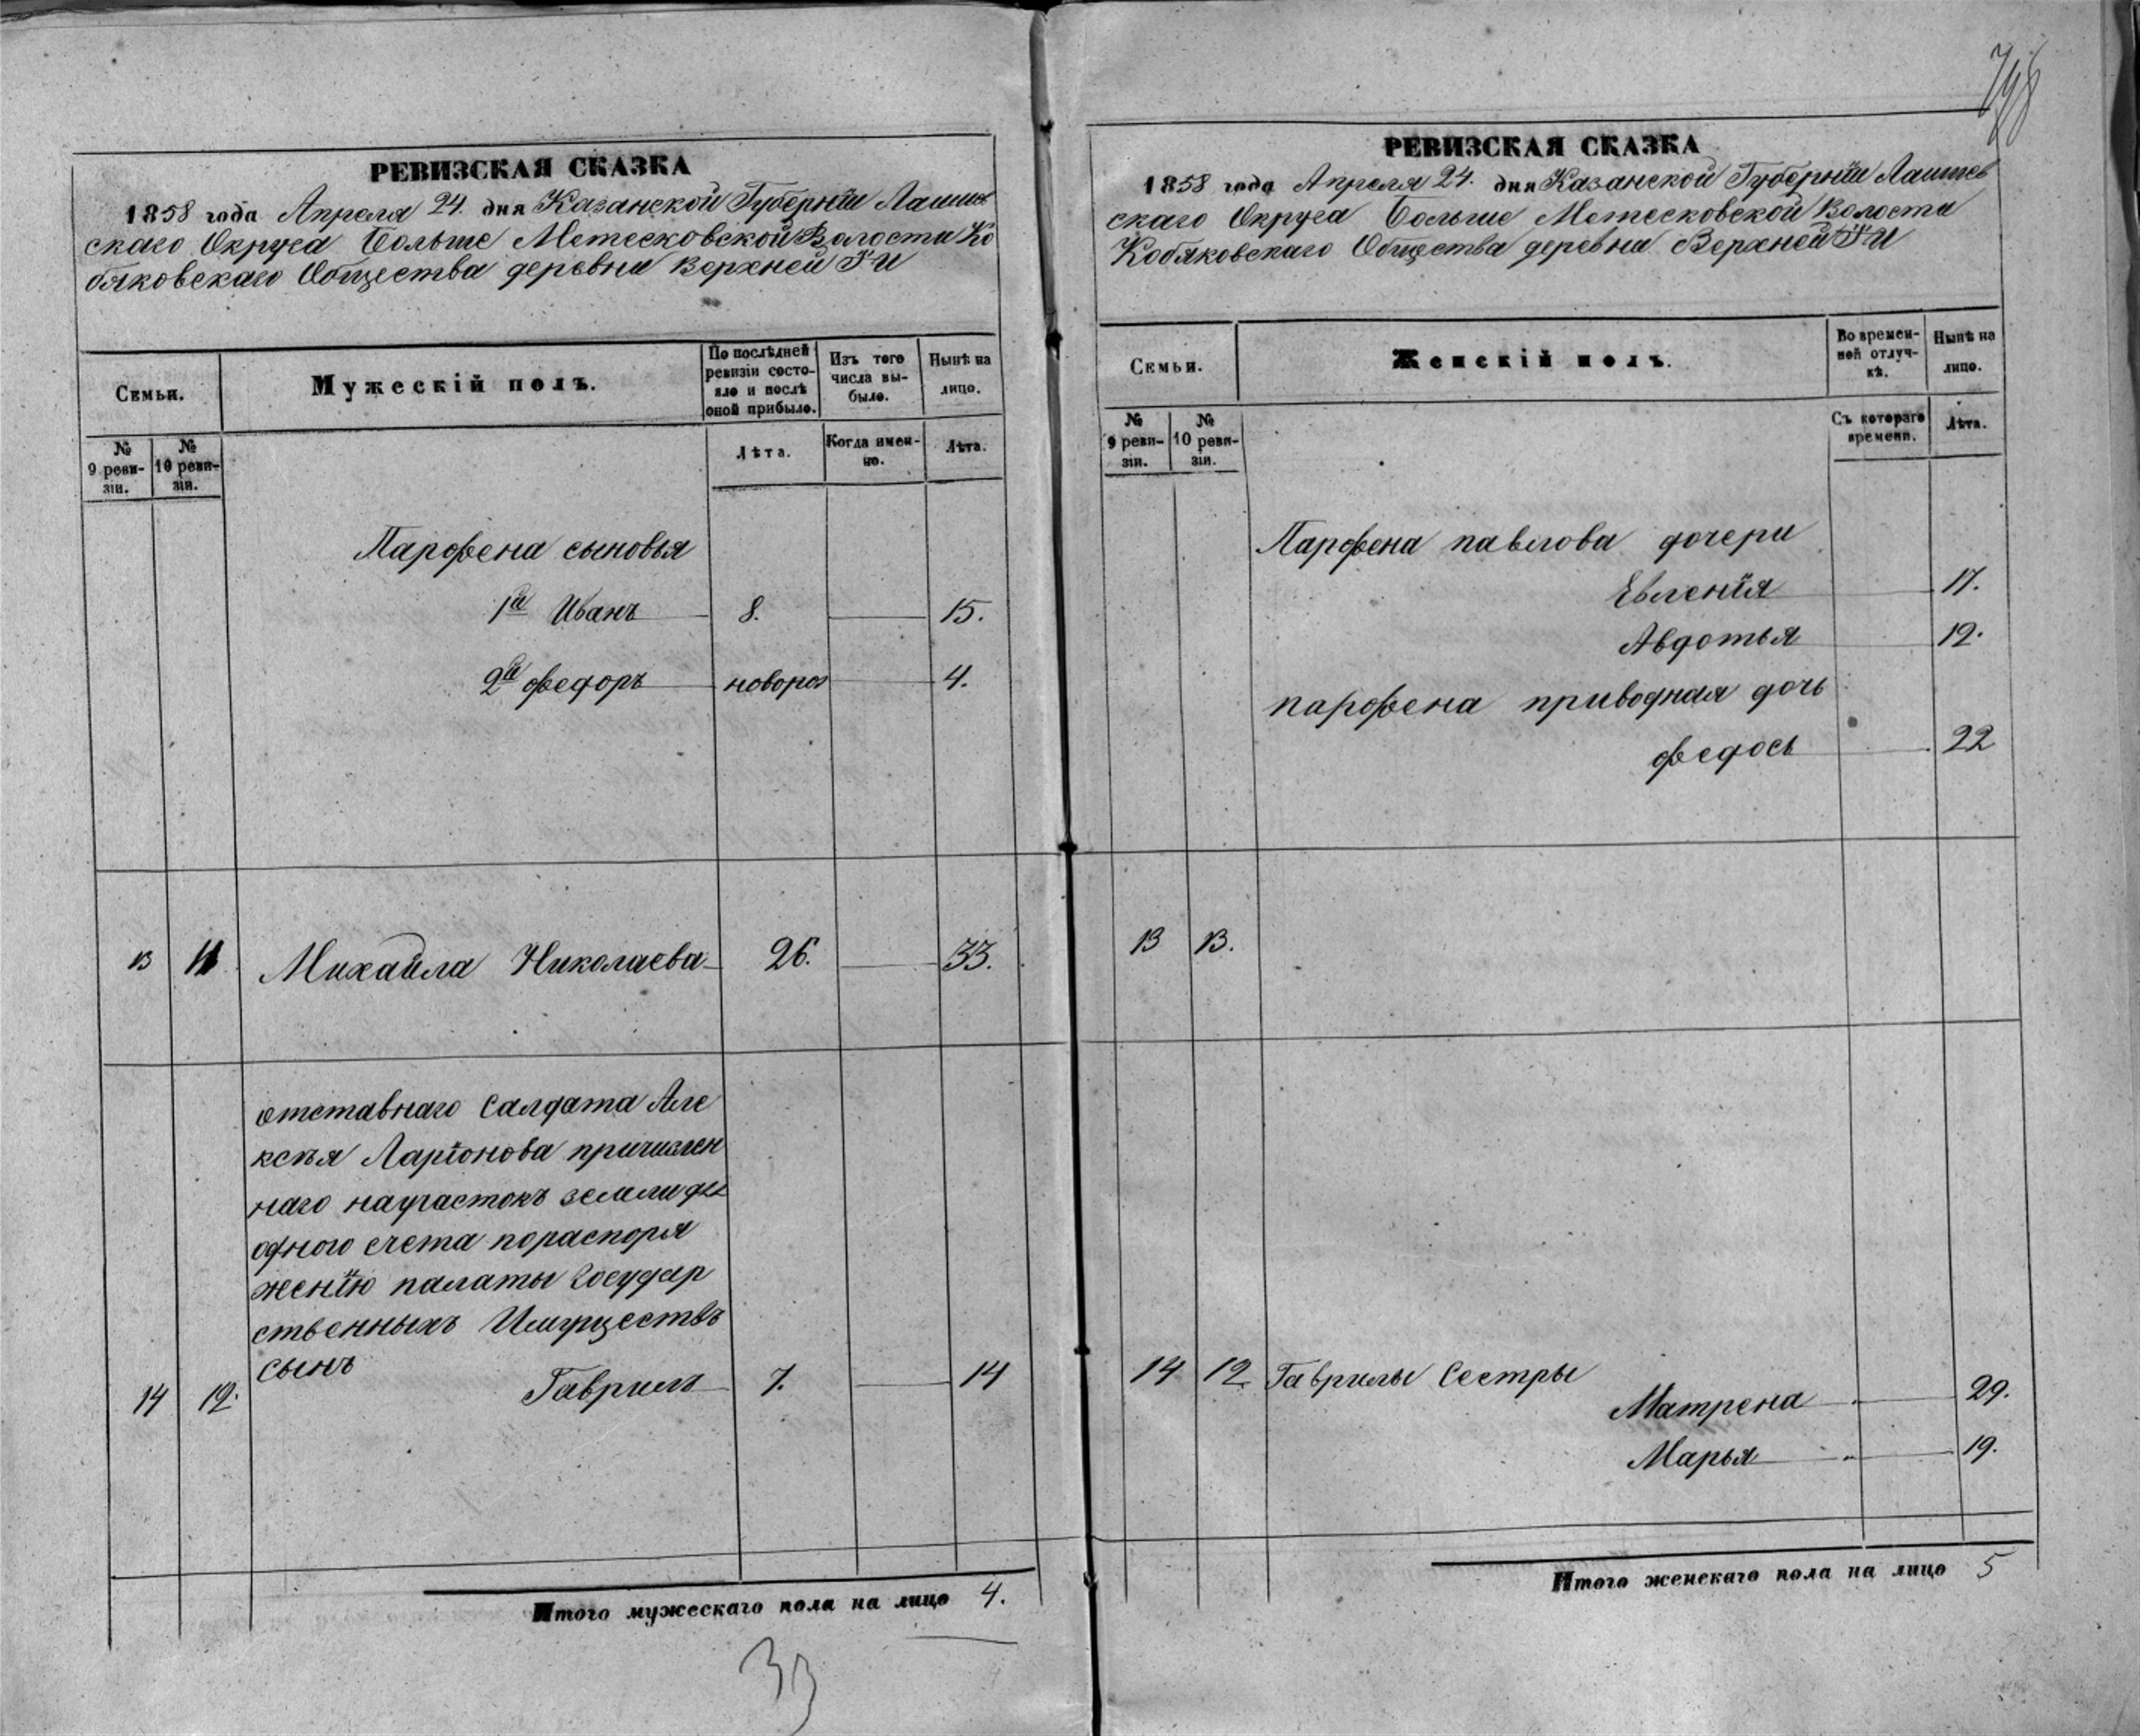 798
РЕВИЗСКАЯ СКАЗКА
1858 года Апреля 24. дня Казанской Губернїи Лаишев
скаго Округа Больше Метесковской Волости Ко
бяковскаго Общества деревни Верхней
Семьи.
Мужескій полъ.
По послѣдней ревизіи состо-
яло и послѣ
оной прибыло.
Изъ того
числа вы-
было.
Нынѣ на
лицо.
№
9 реви-
зіи.
№
10 реви-
зіи.
Лѣта.
Когда имен-
но.
Лѣта.
Парфена сыновья
1й Иванъ 8. 15.
2й Федоръ новорож 4.
13 11 Михайла Николаева 26. 33.
отставнаго Салдата Але
ксѣя Ларіонова причислен
наго научастокъ земли для
одного счета пораспоря
женїю палаты Государ
ственныхъ Имуществъ
сынъ
14 12. Гаврилъ 7. 14
Итого мужескаго пола на лицо 4.
33
РЕВИЗСКАЯ СКАЗКА
1858 года Апреля 24. дня Казанской Губернїи Лаишев
скаго Округа Больше Метесковской Волости
Кобяковскаго Общества деревни Верхней
Семьи.
Женскій полъ.
Во времен-
ной отлуч-
кѣ.
Нынѣ на
лицо.
№
9 реви-
зіи.
№
10 реви-
зіи.
Съ котораго
времени.
Лѣта.
Парфена павлова дочери
Евленїя 17.
Авдотья 12.
парфена приводная дочь
Федось 22
13 13.
14 12 Гаврилы Сестры
Матрена 29.
Марья 19.
Итого женскаго пола на лицо 5